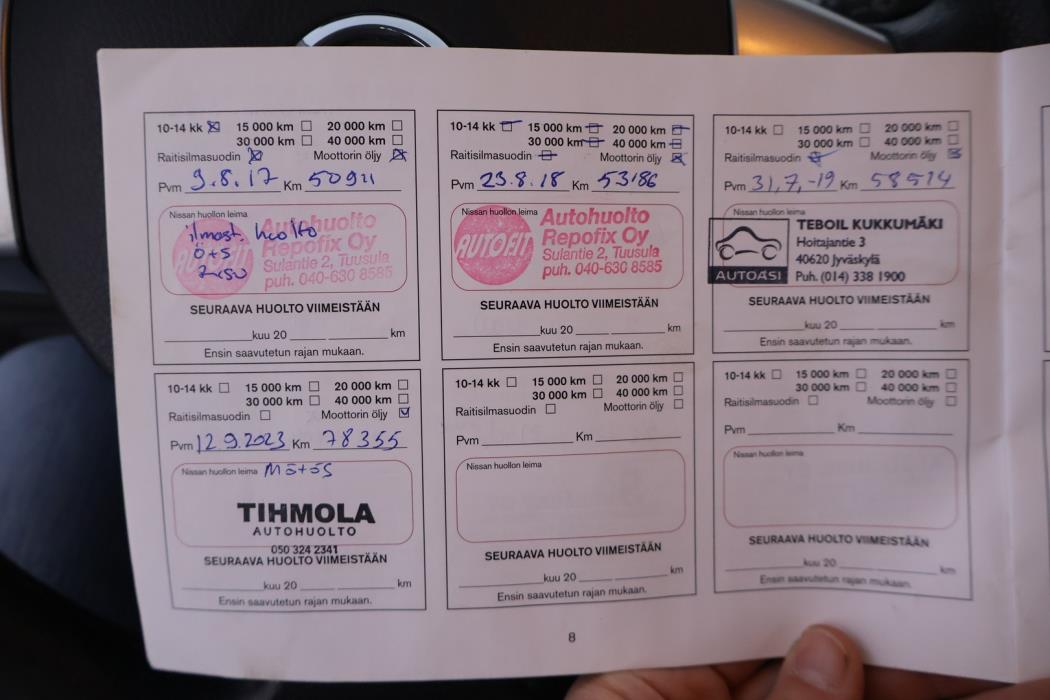 10-14 kk 15 000 km 20 000 km
30 000 km 40 000 km
Raitisilmasuodin Moottorin öljy
Pvm 9.8.17 Km 50911
Nissan huollon leima
ilmast. huolto
ö+s
AUTOFIT
Autohuolto
Repofix Oy
Sulantie 2, Tuusula
puh. 040-630 8585
SEURAAVA HUOLTO VIIMEISTÄÄN
kuu 20 km
Ensin saavutetun rajan mukaan.
10-14 kk 15 000 km 20 000 km
30 000 km 40 000 km
Raitisilmasuodin Moottorin öljy
Pvm 23.8.18 Km 53186
Nissan huollon leima
AUTOFIT
Autohuolto
Repofix Oy
Sulantie 2, Tuusula
puh. 040-630 8585
SEURAAVA HUOLTO VIIMEISTÄÄN
kuu 20 km
Ensin saavutetun rajan mukaan.
10-14 kk 15 000 km 20 000 km
30 000 km 40 000 km
Raitisilmasuodin Moottorin öljy
Pvm 31,7,-19 Km 58514
Nissan huollon leima
AUTOASI
TEBOIL KUKKUMÄKI
Hoitajantie 3
40620 Jyväskylä
Puh. (014) 338 1900
SEURAAVA HUOLTO VIIMEISTÄÄN
kuu 20 km
Ensin saavutetun rajan mukaan.
10-14 kk 15 000 km 20 000 km
30 000 km 40 000 km
Raitisilmasuodin Moottorin öljy
Pvm 12.9.2023 Km 78355
Nissan huollon leima Mö+ös
TIHMOLA
AUTOHUOLTO
050 324 2341
SEURAAVA HUOLTO VIIMEISTÄÄN
kuu 20 km
Ensin saavutetun rajan mukaan.
10-14 kk 15 000 km 20 000 km
30 000 km 40 000 km
Raitisilmasuodin Moottorin öljy
Pvm Km
Nissan huollon leima
SEURAAVA HUOLTO VIIMEISTÄÄN
kuu 20 km
Ensin saavutetun rajan mukaan.
10-14 kk 15 000 km 20 000 km
30 000 km 40 000 km
Raitisilmasuodin Moottorin öljy
Pvm Km
Nissan huollon leima
SEURAAVA HUOLTO VIIMEISTÄÄN
kuu 20 km
Ensin saavutetun rajan mukaan.
8